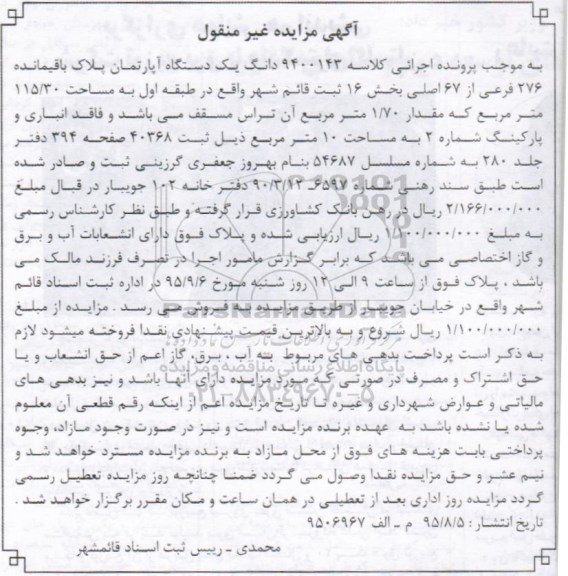 آگهی مزایده غیر منقول
به موجب پرونده اجرائی کلاسه ۹۴۰۰۱۴۳ دانگ یک دستگاه آپارتمان پلاک باقیمانده
۲۷۶ فرعی از ۶۷ اصلی بخش ۱۶ ثبت قائم شهر واقع در طبقه اول به مساحت ۱۱۵/۳۰
متر مربع که مقدار ۱/۷۰ متر مربع آن تراس مسقف می باشد و فاقد انباری و
پارکینگ شماره ۲ به مساحت ۱۰ متر مربع ذیل ثبت ۴۰۳۶۸ صفحه ۳۹۴ دفتر
جلد ۲۸۰ به شماره مسلسل ۵۴۶۸۷ بنام بهروز جعفری گرزینی ثبت و صادر شده
است طبق سند رهنی شماره ۶۵۹۷ـ ۹۰/۳/۱۲ دفتر خانه ۱۰۲ جویبار در قبال مبلغ
۲/۱۶۶/۰۰۰/۰۰۰ ریال در رهن بانک کشاورزی قرار گرفته و طبق نظر کارشناس رسمی
به مبلغ ۱/۱۰۰/۰۰۰/۰۰۰ ریال ارزیابی شده و پلاک فوق دارای انشعابات آب و برق
و گاز اختصاصی می باشد که برابر گزارش مامور اجرا در تصرف فرزند مالک می
باشد ، پلاک فوق از ساعت ۹ الی ۱۲ روز شنبه مورخ ۹۵/۹/۶ در اداره ثبت اسناد قائم
شهر واقع در خیابان جویبار از طریق مزایده به فروش می رسد . مزایده از مبلغ
۱/۱۰۰/۰۰۰/۰۰۰ ریال شروع و به بالاترین قیمت پیشنهادی نقدا فروخته میشود لازم
به ذکر است پرداخت بدهی های مربوط بته آب ، برق، گاز اعم از حق انشعاب و یا
حق اشتراک و مصرف در صورتی که مورد مزایده دارای آنها باشد و نیز بدهی های
مالیاتی و عوارض شهرداری و غیره تا تاریخ مزایده اعم از اینکه رقم قطعی آن معلوم
شده یا نشده باشد به عهده برنده مزایده است و نیز در صورت وجود مازاد، وجوه
پرداختی بابت هزینه های فوق از محل مازاد به برنده مزایده مسترد خواهد شد و
نیم عشر و حق مزایده نقدا وصول می گردد ضمنا چنانچه روز مزایده تعطیل رسمی
گردد مزایده روز اداری بعد از تعطیلی در همان ساعت و مکان مقرر برگزار خواهد شد .
تاریخ انتشار : ۹۵/۸/۵ م ـ الف ۹۵۰۶۹۶۷
محمدی ـ رییس ثبت اسناد قائمشهر
ParsNamadData
پایگاه اطلاع رسانی مناقصه و مزایده
۰۲۱-۸۸۳۴۹۶۷۰-۵